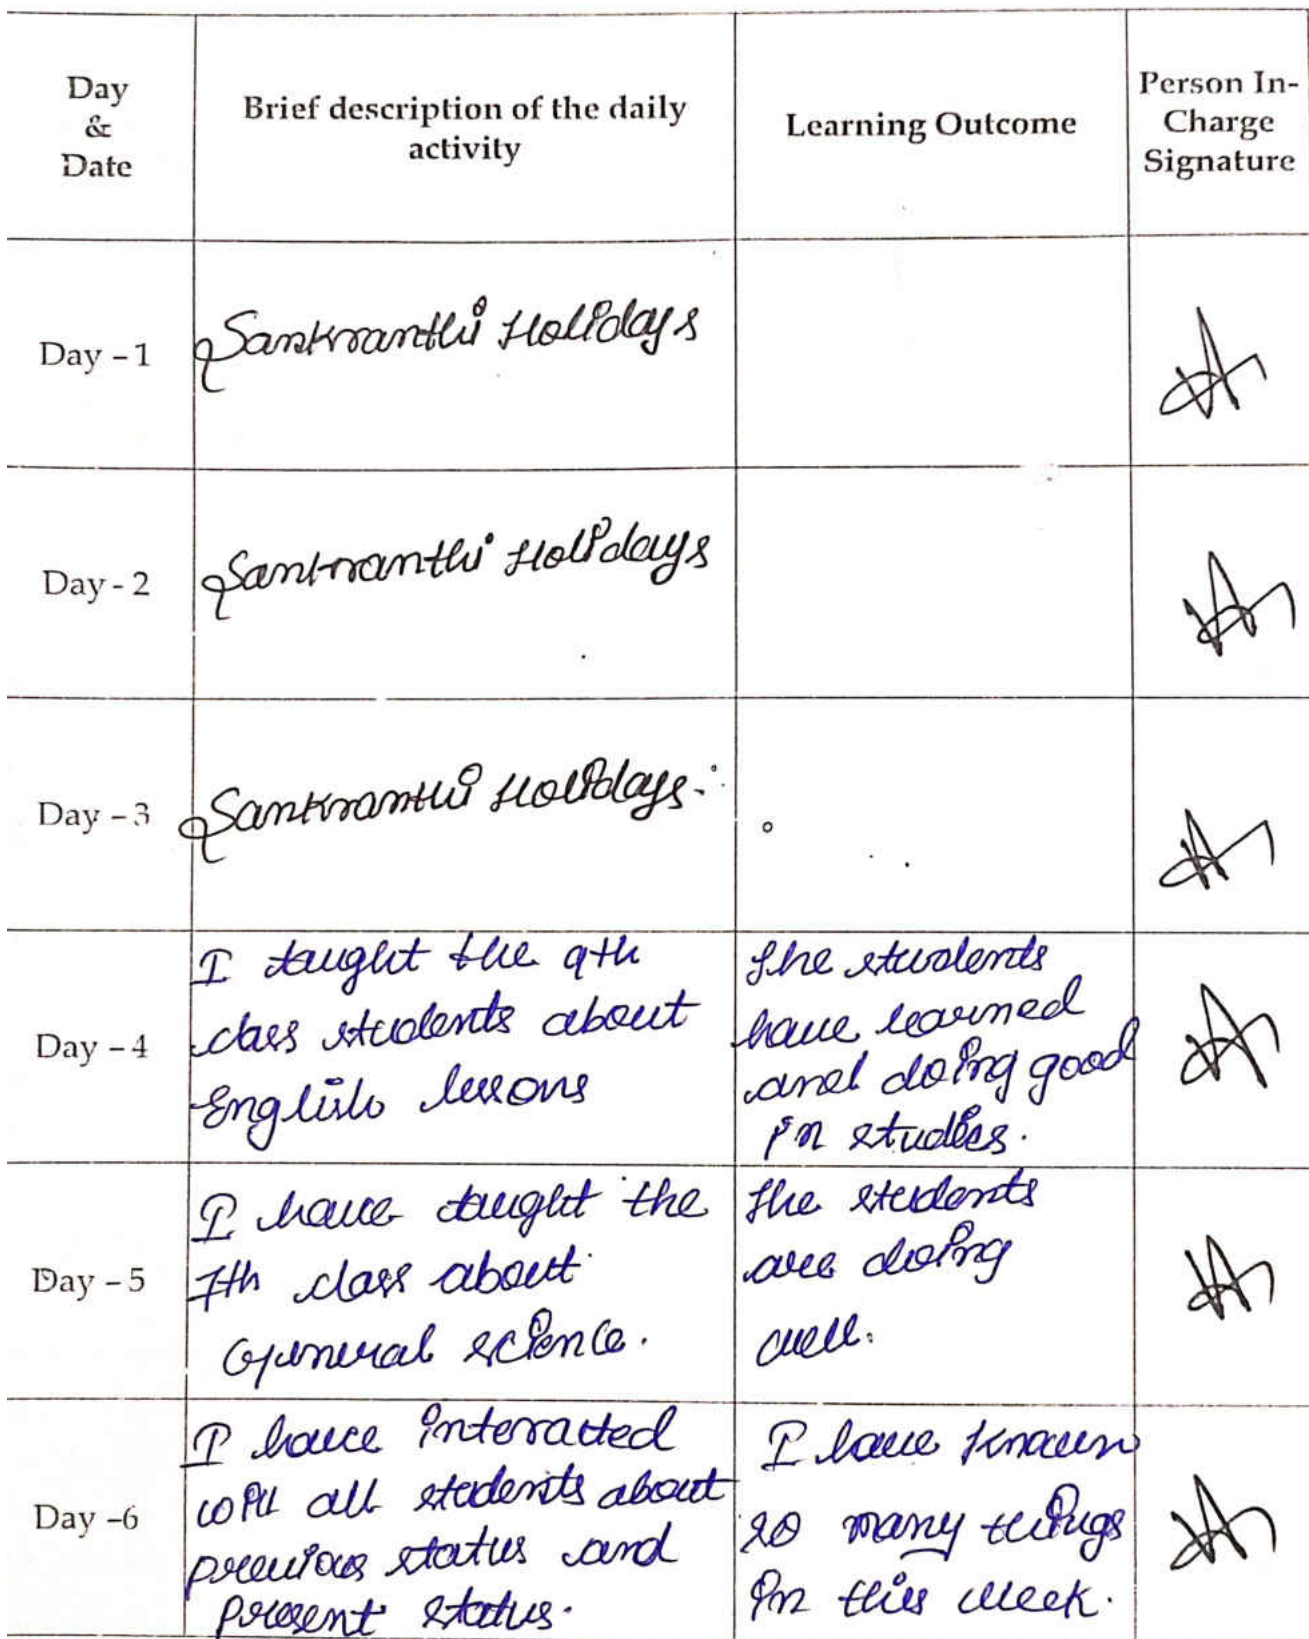 Day
&
Date
Brief description of the daily
activity
Learning Outcome
Person In-
Charge
Signature
Day - 1
Sankranthi Holidays
Day - 2
Sankranthi Holidays
Day - 3
Sankranthi Holidays.
Day - 4
I taught the 9th
class students about
English lessons
The students
have learned
and doing good
in studies.
Day - 5
I have taught the
7th class about
General science.
The students
are doing
well.
Day -6
I have interacted
with all students about
previous status and
present status.
I have known
so many things
in this week.